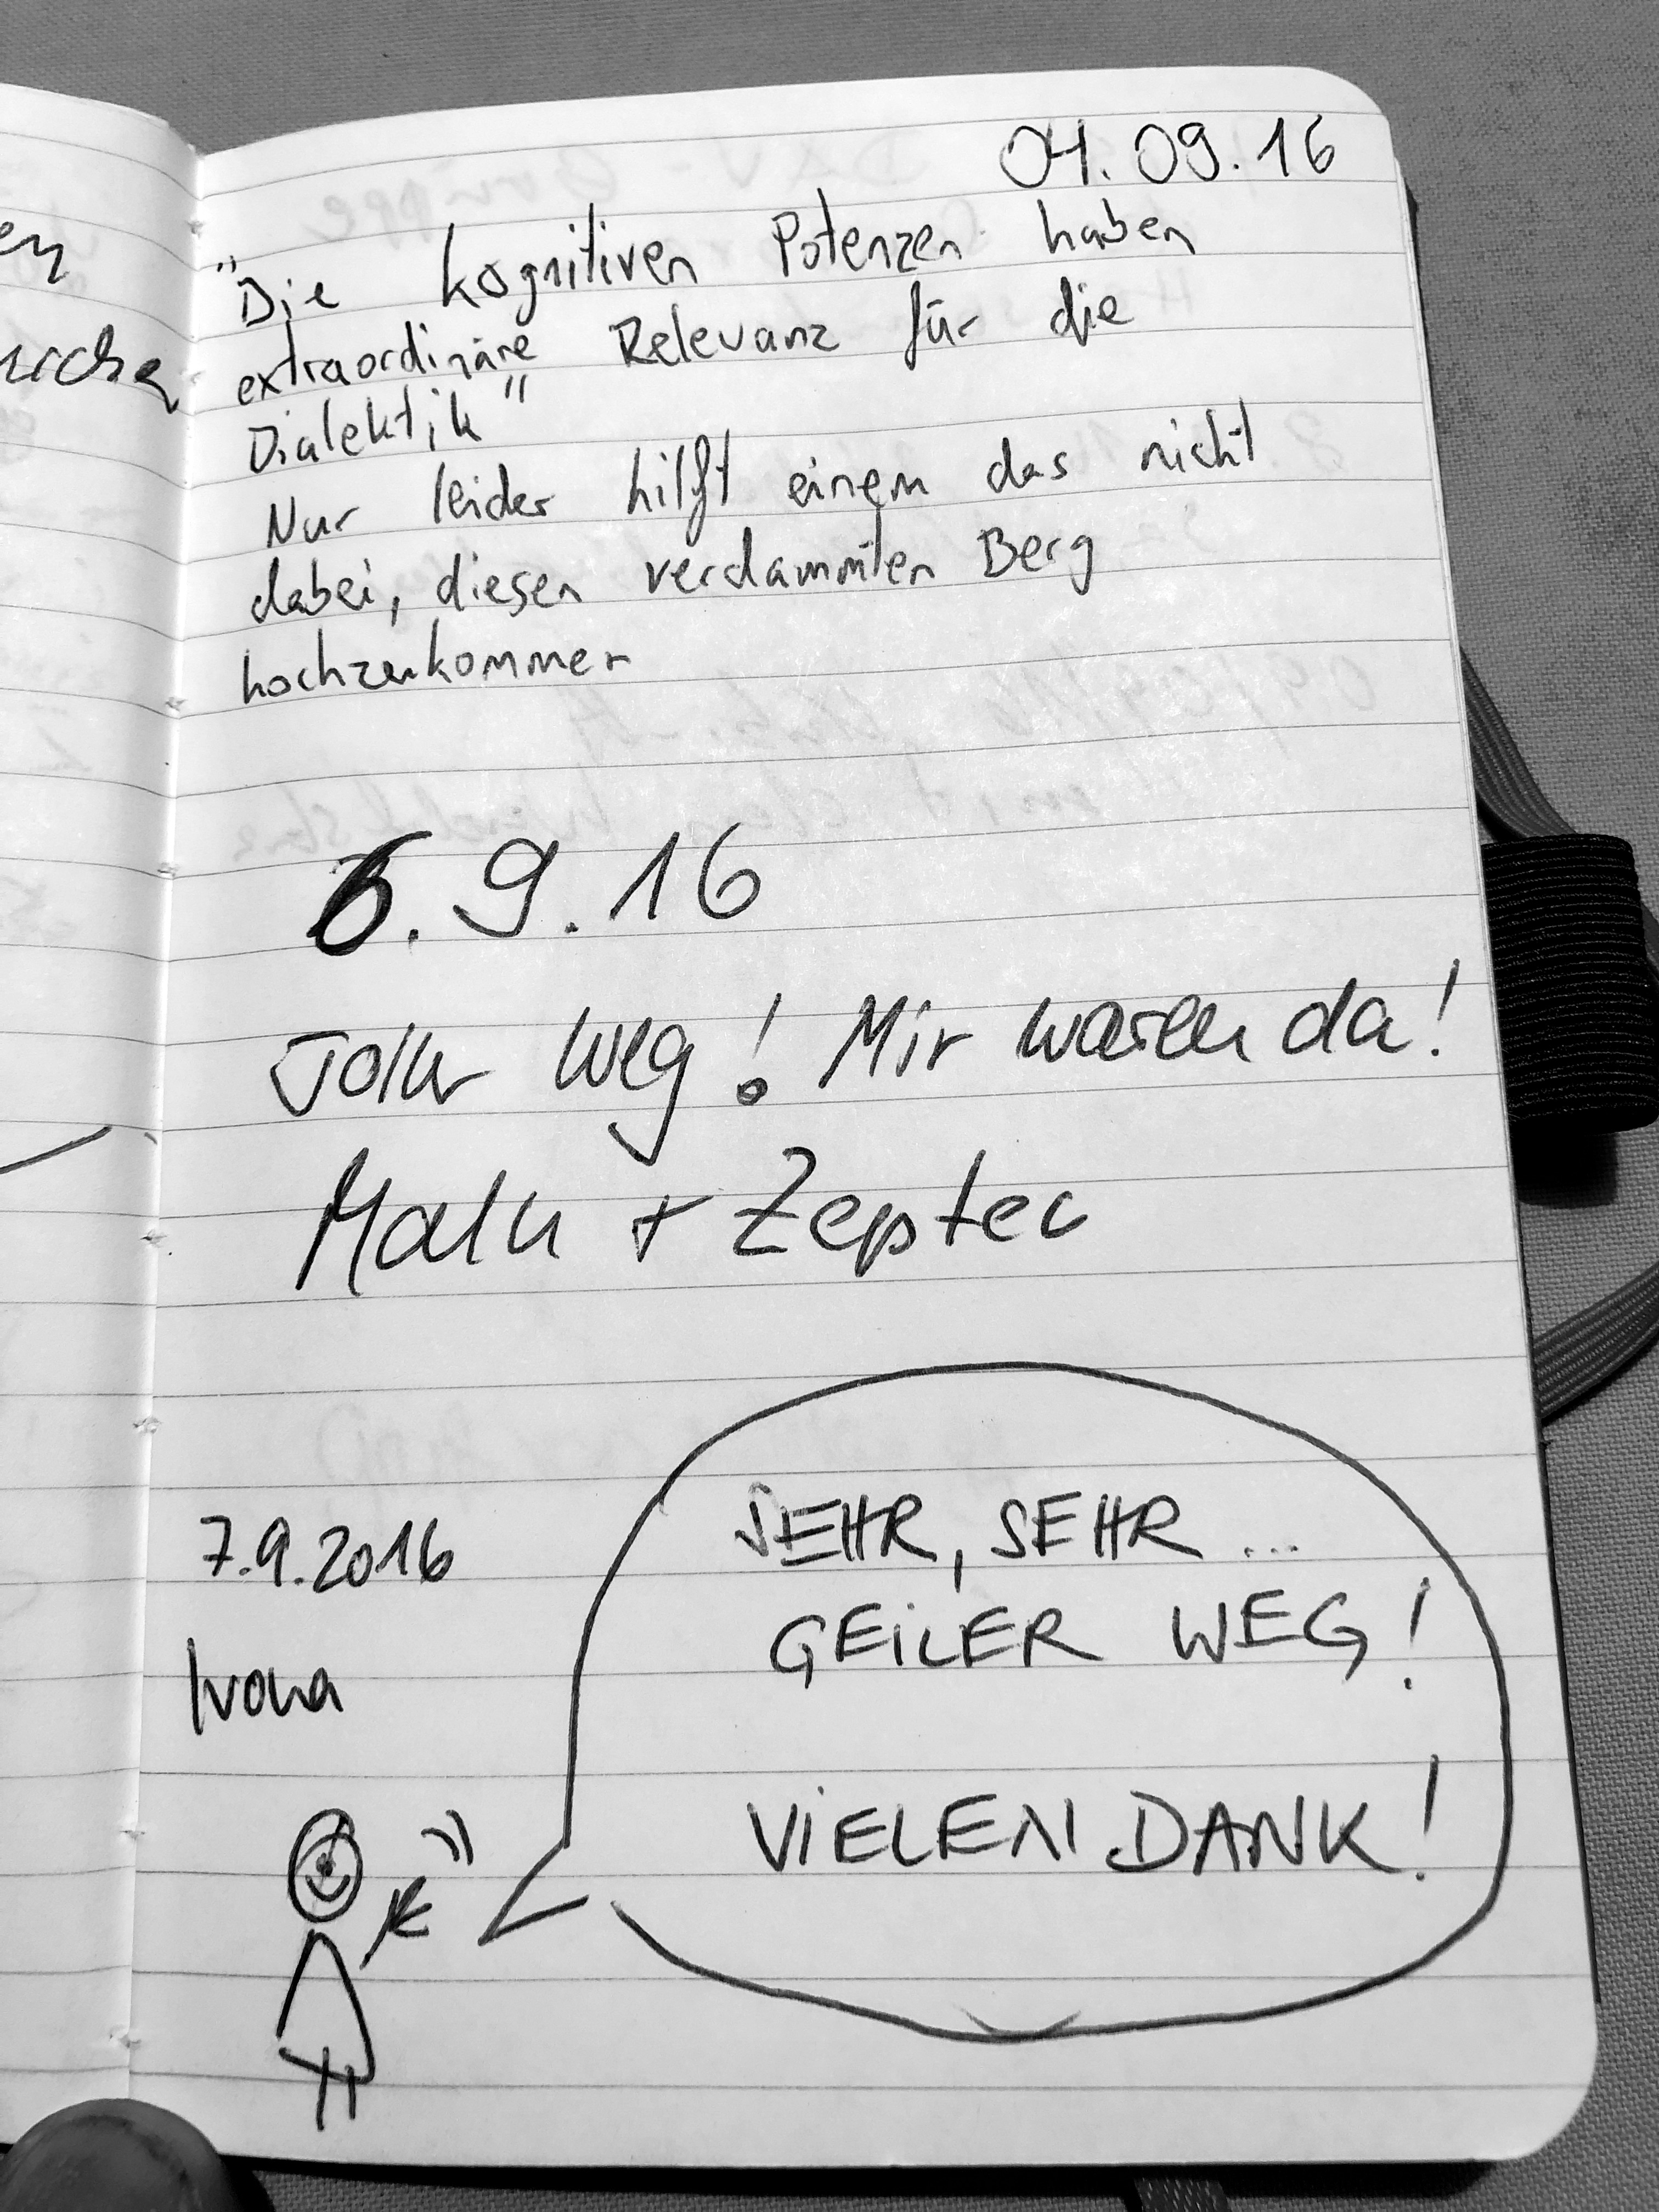 en
04.09.16
"Die kognitiven Potenzen haben
extraordinäre Relevanz für die
Dialektik"
Nur leider hilft einem das nicht
dabei, diesen verdammten Berg
hochzukommen
6.9.16
Toller Weg! Mir waren da!
Malu + Zeptec
7.9.2016
Ivona
SEHR, SEHR ...
GEiLER WEG!
ViELEN DANK!